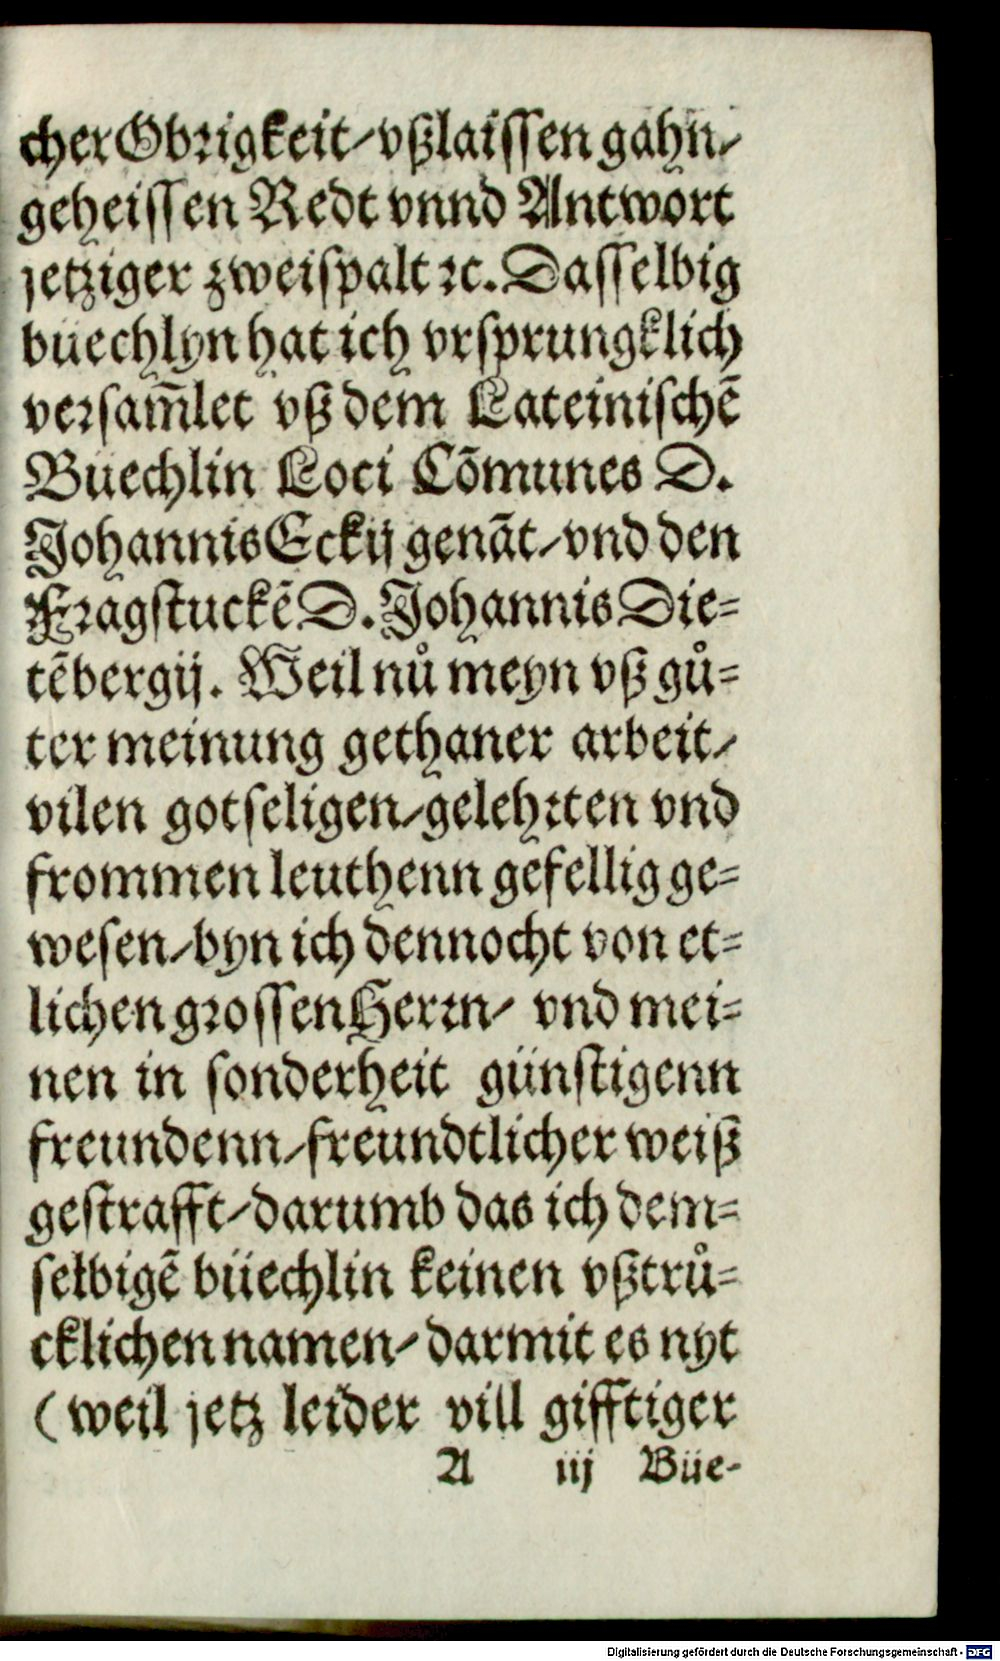 cher Obrigkeit/ vßlaissen gahn/
geheissen Redt vnnd Antwort
jetziger zweispalt ꝛc. Dasselbig
büechlyn hat ich vrsprungklich
versam̃let vß dem Lateinischẽ
Büechlin Loci Cõmunes D.
Johannis Eckij genãt/ vnd den
Fragstuckẽ D. Johannis Die=
tẽbergij. Weil nů meyn vß gů=
ter meinung gethaner arbeit/
vilen gotseligen/ gelehrten vnd
frommen leuthenn gefellig ge=
wesen/ byn ich dennocht von et=
lichen grossen Herrn/ vnd mei=
nen in sonderheit günstigenn
freundenn/ freundtlicher weiß
gestrafft/ darumb das ich dem=
selbigẽ büechlin keinen vßtrů=
cklichen namen/ darmit es nyt
(weil jetz leider vill gifftiger
A iij Büe-
Digitalisierung gefördert durch die Deutsche Forschungsgemeinschaft - DFG